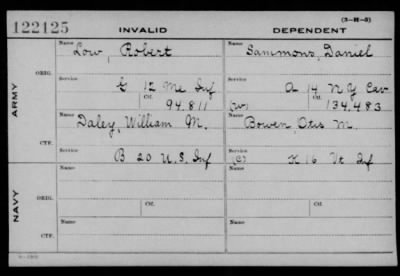 (3—H—5)
122125 INVALID DEPENDENT
Name Name
Low, Robert Sammons, Daniel
ORIG.
Service Service
G 12 Me Inf A 14 N Y Cav
Ctf. Ctf.
94,811 (W) 134,483
ARMY
Name Name
Daley, William M. Bowen, Otis M.
CTF.
Service Service
B 20 U.S. Inf (C) K 16 Vt Inf
Name Name
ORIG.
NAVY
Ctf. Ctf.
Name Name
CTF.